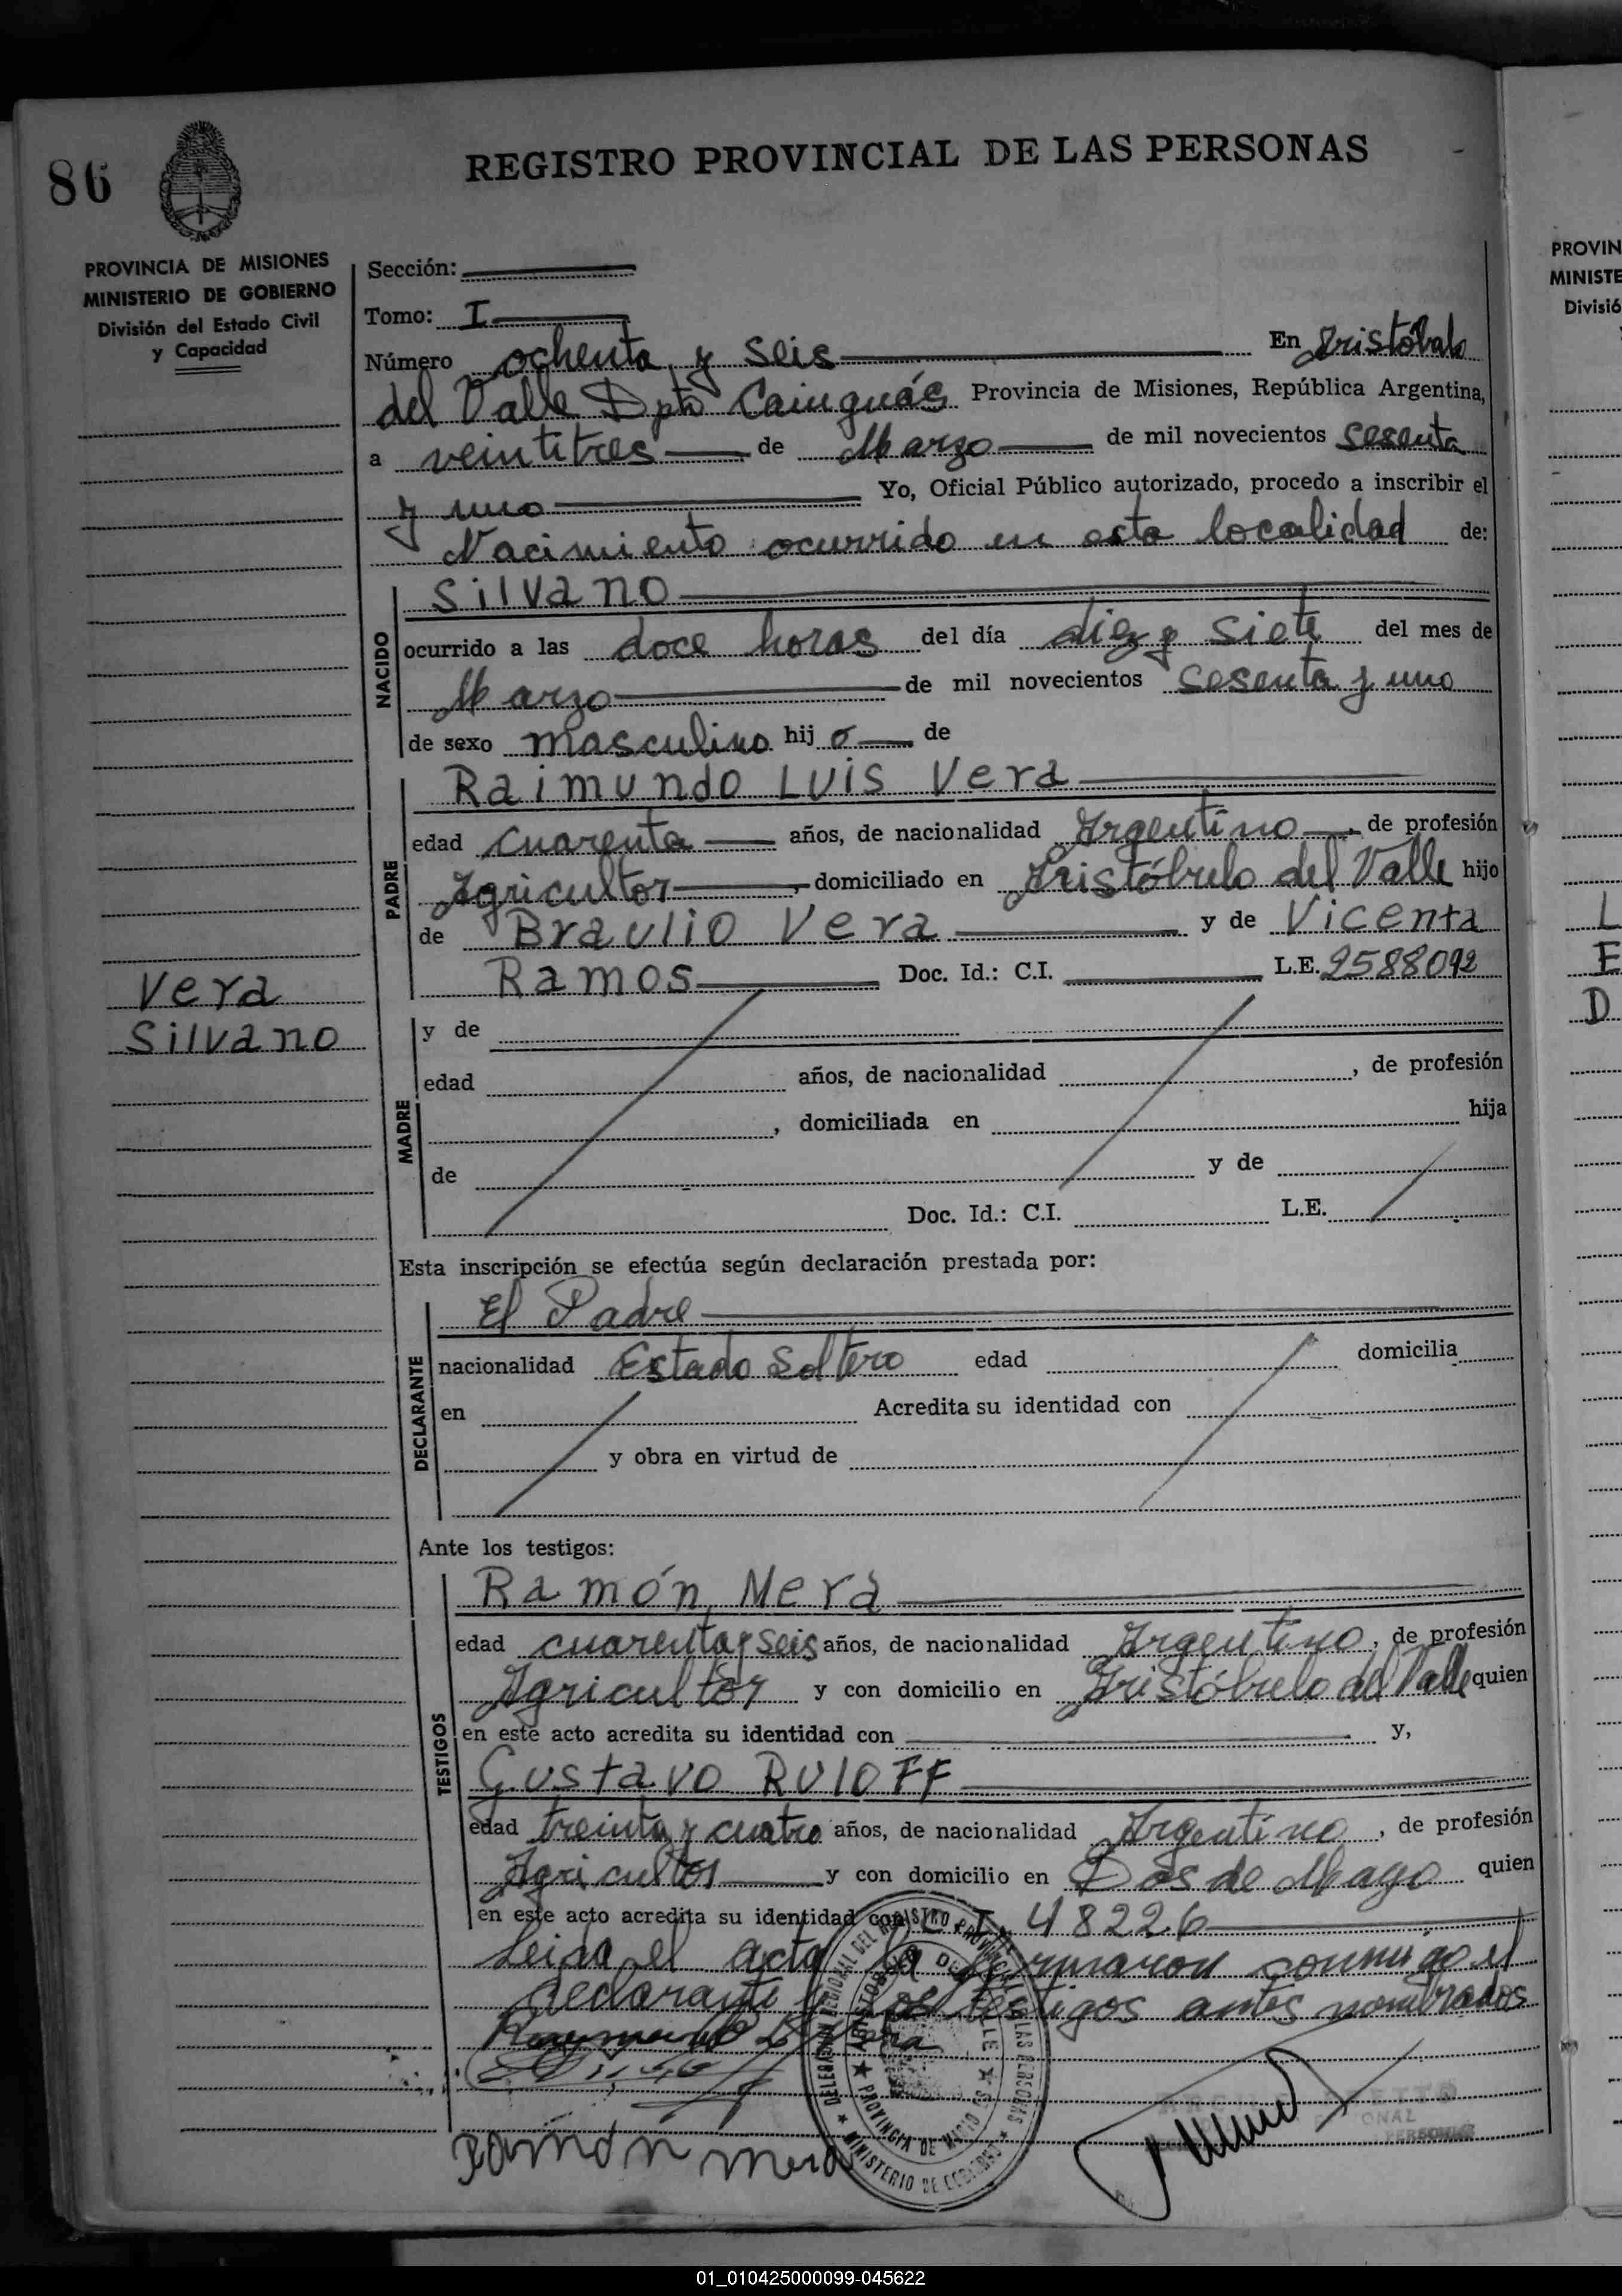 86
REGISTRO PROVINCIAL DE LAS PERSONAS
PROVINCIA DE MISIONES
MINISTERIO DE GOBIERNO
División del Estado Civil
y Capacidad
Sección:
Tomo: I
Número ochenta y seis En Aristóbulo
del Valle Dpto Cainguás Provincia de Misiones, República Argentina,
a veintitres de Marzo de mil novecientos sesenta
y uno Yo, Oficial Público autorizado, procedo a inscribir el
Nacimiento ocurrido en esta localidad de:
NACIDO
Silvano
ocurrido a las doce horas del día diez y siete del mes de
Marzo de mil novecientos sesenta y uno
de sexo masculino hijo de
PADRE
Raimundo Luis Vera
edad cuarenta años, de nacionalidad Argentino, de profesión
Agricultor, domiciliado en Aristóbulo del Valle hijo
de Braulio Vera y de Vicenta
Ramos Doc. Id.: C.I. L.E. 2588092
Vera
Silvano
MADRE
y de
edad años, de nacionalidad , de profesión
, domiciliada en hija
de y de
Doc. Id.: C.I. L.E.
Esta inscripción se efectúa según declaración prestada por:
DECLARANTE
El Padre
nacionalidad Estado Soltero edad domicilia
en Acredita su identidad con
y obra en virtud de
Ante los testigos:
TESTIGOS
Ramón Mera
edad cuarenta y seis años, de nacionalidad Argentino, de profesión
Agricultor y con domicilio en Aristóbulo del Valle quien
en este acto acredita su identidad con y,
Gustavo RuloFF
edad treinta y cuatro años, de nacionalidad Argentino, de profesión
Agricultor y con domicilio en Dos de Mayo quien
en este acto acredita su identidad con C I 48226
Leida el acta la firmaron conmigo el
declarante y los testigos antes nombrados
Raymundo L Vera
Ramon Mera
DELEGACION REGIONAL DEL REGISTRO PROVINCIAL DE LAS PERSONAS
ARISTOBULO DEL VALLE
PROVINCIA DE MISIONES
MINISTERIO DE GOBIERNO
PROVIN
MINISTE
Divisió
L
E
D
01_010425000099-045622